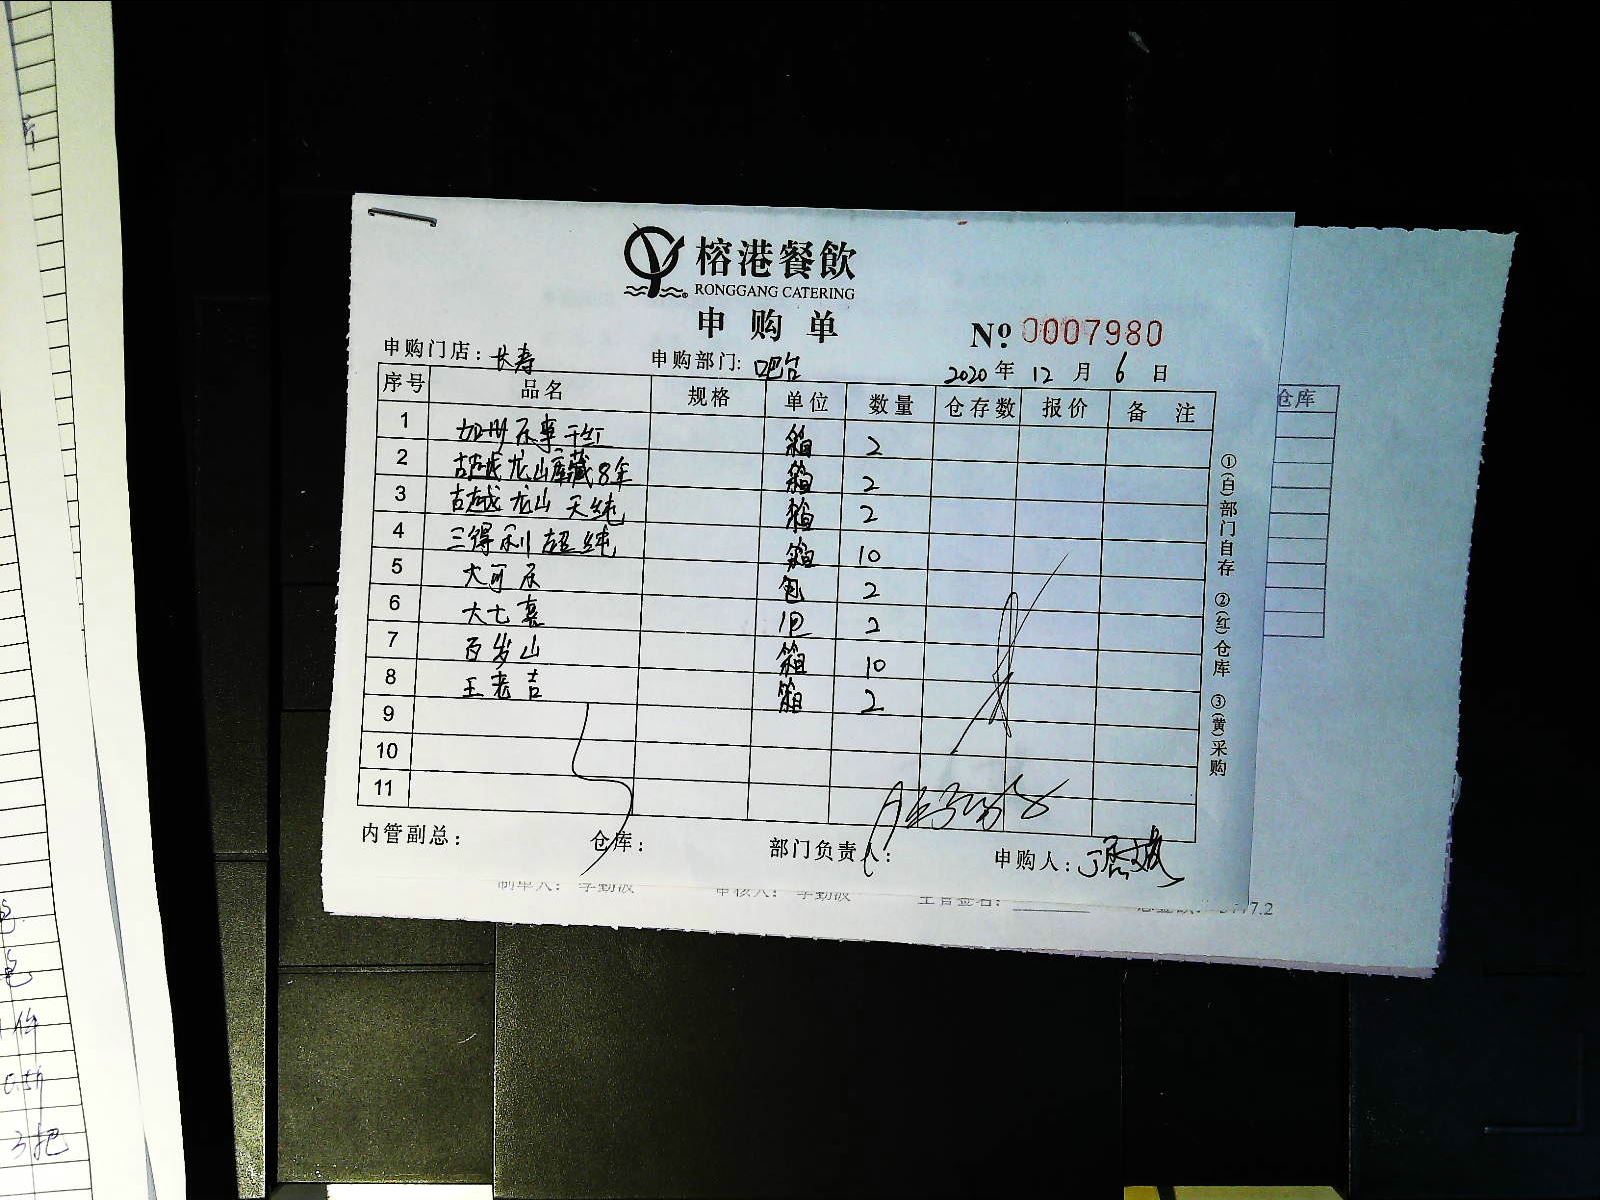 榕港餐飲
RONGGANG CATERING
申购单
№ 0007980
申购门店：长寿 申购部门：吧台 2020年12月6日
序号 品名 规格 单位 数量 仓存数 报价 备注
1 加州乐事干红 箱 2
2 古越龙山库藏8年 箱 2
3 古越龙山天纯 箱 2
4 三得利超纯 箱 10
5 大可乐 包 2
6 大七喜 包 2
7 百岁山 箱 10
8 王老吉 箱 2
9
10
11
内管副总： 仓库： 部门负责人： 申购人：
①(白)部门自存 ②(红)仓库 ③(黄)采购
仓库
制单人：李勤波 审核人：李勤波 主管签名：
3把